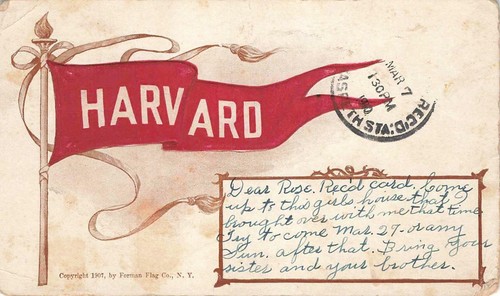 HARVARD
MAR 7
130 PM
REC'D
STA.
Dear Rose. Rec'd card. Come
up to this girls house that I
brought over with me that time
Try to come Mar. 27. or any
Sun. after that. Bring your
sister and your brother.
Copyright 1907, by Ferman Flag Co., N. Y.